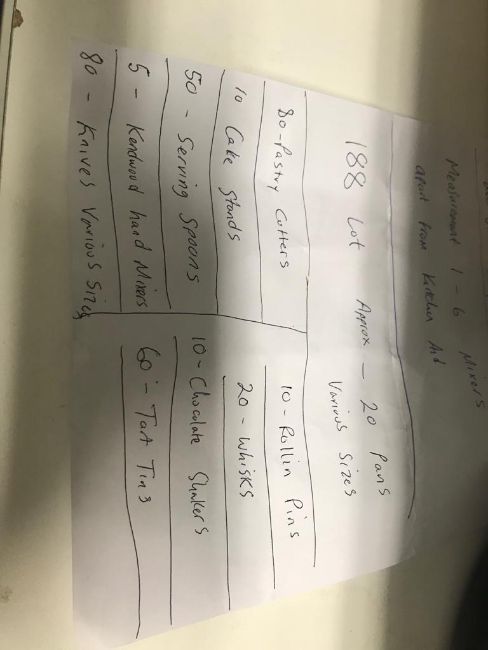 Mixers
Measurement 1 - 6
apart from Kitchen Aid
188 Lot Approx - 20 Pans
Various Sizes
80 - Pastry Cutters
10 Cake Stands
50 - Serving Spoons
5 - Kendwood hand Mixers
80 - Knives Various Sizes
10 - Rollin Pins
20 - Whisks
10 - Chocolate Shakers
60 - Tart Tins